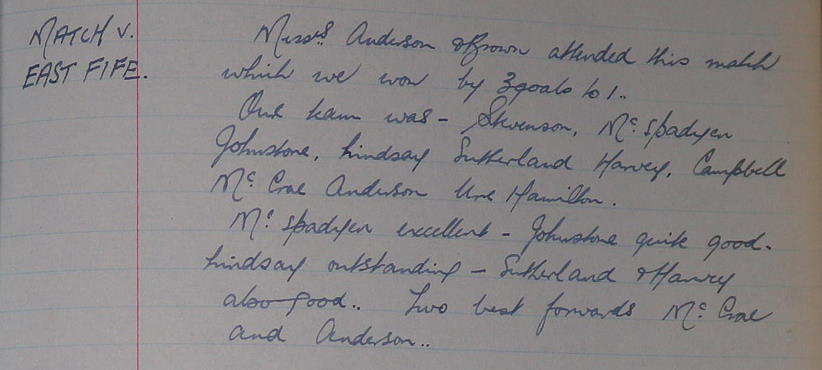 MATCH V.
EAST FIFE.
Messrs Anderson & Brown attended this match
which we won by 3 goals to 1..
Our team was – Stevenson, Mc. Spadyen
Johnstone, Lindsay Sutherland Harvey, Campbell
Mc. Crae Anderson Ure Hamilton.
Mc. Spadyen excellent – Johnstone quite good.
Lindsay outstanding – Sutherland & Harvey
also good.. Two best forwards Mc. Crae
and Anderson..